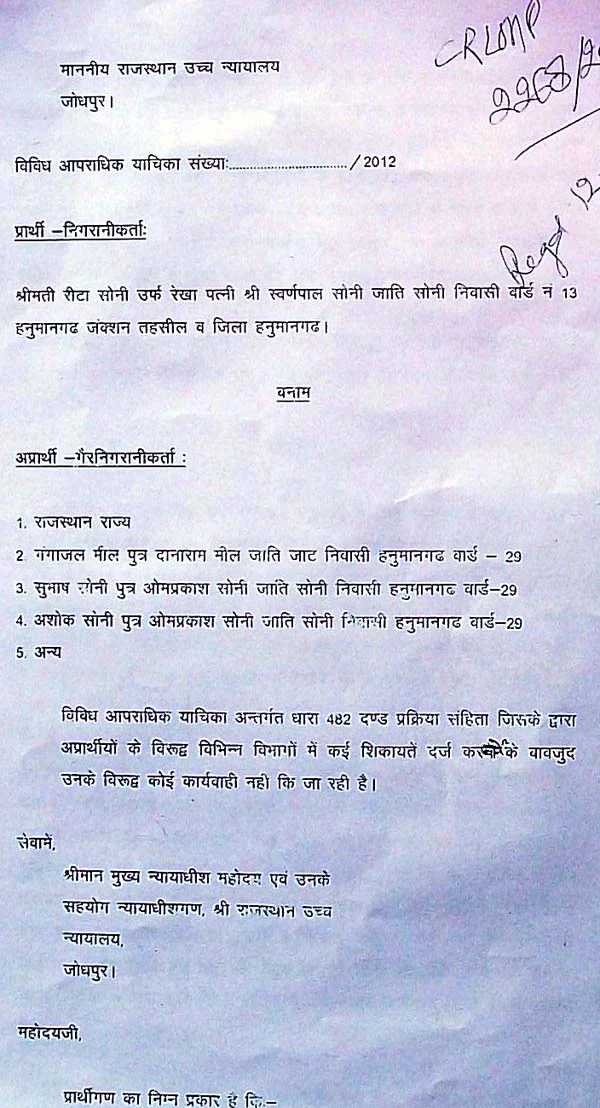 CRLMP
2268/2
माननीय राजस्थान उच्च न्यायालय
जोधपुर।
विविध आपराधिक याचिका संख्याः................................/2012
Regd 12
प्रार्थी –निगरानीकर्ताः
श्रीमती रीटा सोनी उर्फ रेखा पत्नी श्री स्वर्णपाल सोनी जाति सोनी निवासी वार्ड नं 13
हनुमानगढ जंक्शन तहसील व जिला हनुमानगढ।
बनाम
अप्रार्थी –गैरनिगरानीकर्ता :
1. राजस्थान राज्य
2. गंगाजल मील पुत्र दानाराम मील जाति जाट निवासी हनुमानगढ वार्ड – 29
3. सुभाष सोनी पुत्र ओमप्रकाश सोनी जाति सोनी निवासी हनुमानगढ वार्ड–29
4. अशोक सोनी पुत्र ओमप्रकाश सोनी जाति सोनी निवासी हनुमानगढ वार्ड–29
5. अन्य
विविध आपराधिक याचिका अन्तर्गत धारा 482 दण्ड प्रक्रिया संहिता जिसके द्वारा
अप्रार्थीयों के विरूद्व विभिन्न विभागों में कई शिकायतें दर्ज के बावजुद
उनके विरूद्व कोई कार्यवाही नही कि जा रही है।
सेवामें,
श्रीमान मुख्य न्यायाधीश महोदय एवं उनके
सहयोग न्यायाधीशगण, श्री राजस्थान उच्च
न्यायालय,
जोधपुर।
महोदयजी,
प्रार्थीगण का निम्न प्रकार है कि:–